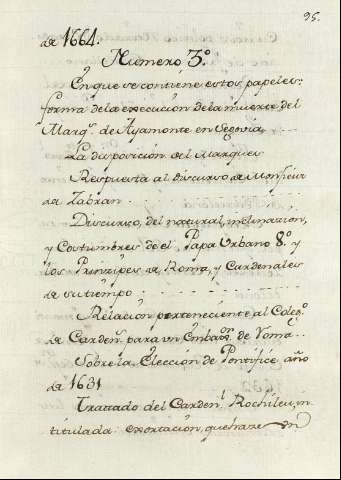 95.
de 1664.
Número 3.º
En que se contiene estos papeles:
forma de la execución de la muerte del
Marq.s de Ayamonte en Segovia
La disposición del Marques
Respuesta al discurso de Monsieur
de Labran.
Discurso, del natural, inclinacion,
y Costumbres de el Papa Urbano 8.º y
los Principes de Roma, y Cardenales
de su tiempo
Relacion perteneciente al Coleg.º
de Carden.s para un Embax.or de Roma
Sobre la Elección de Pontifice año
de 1631
Trattado del Carden.l Rochileu, in
titulada: exortación, que haze en